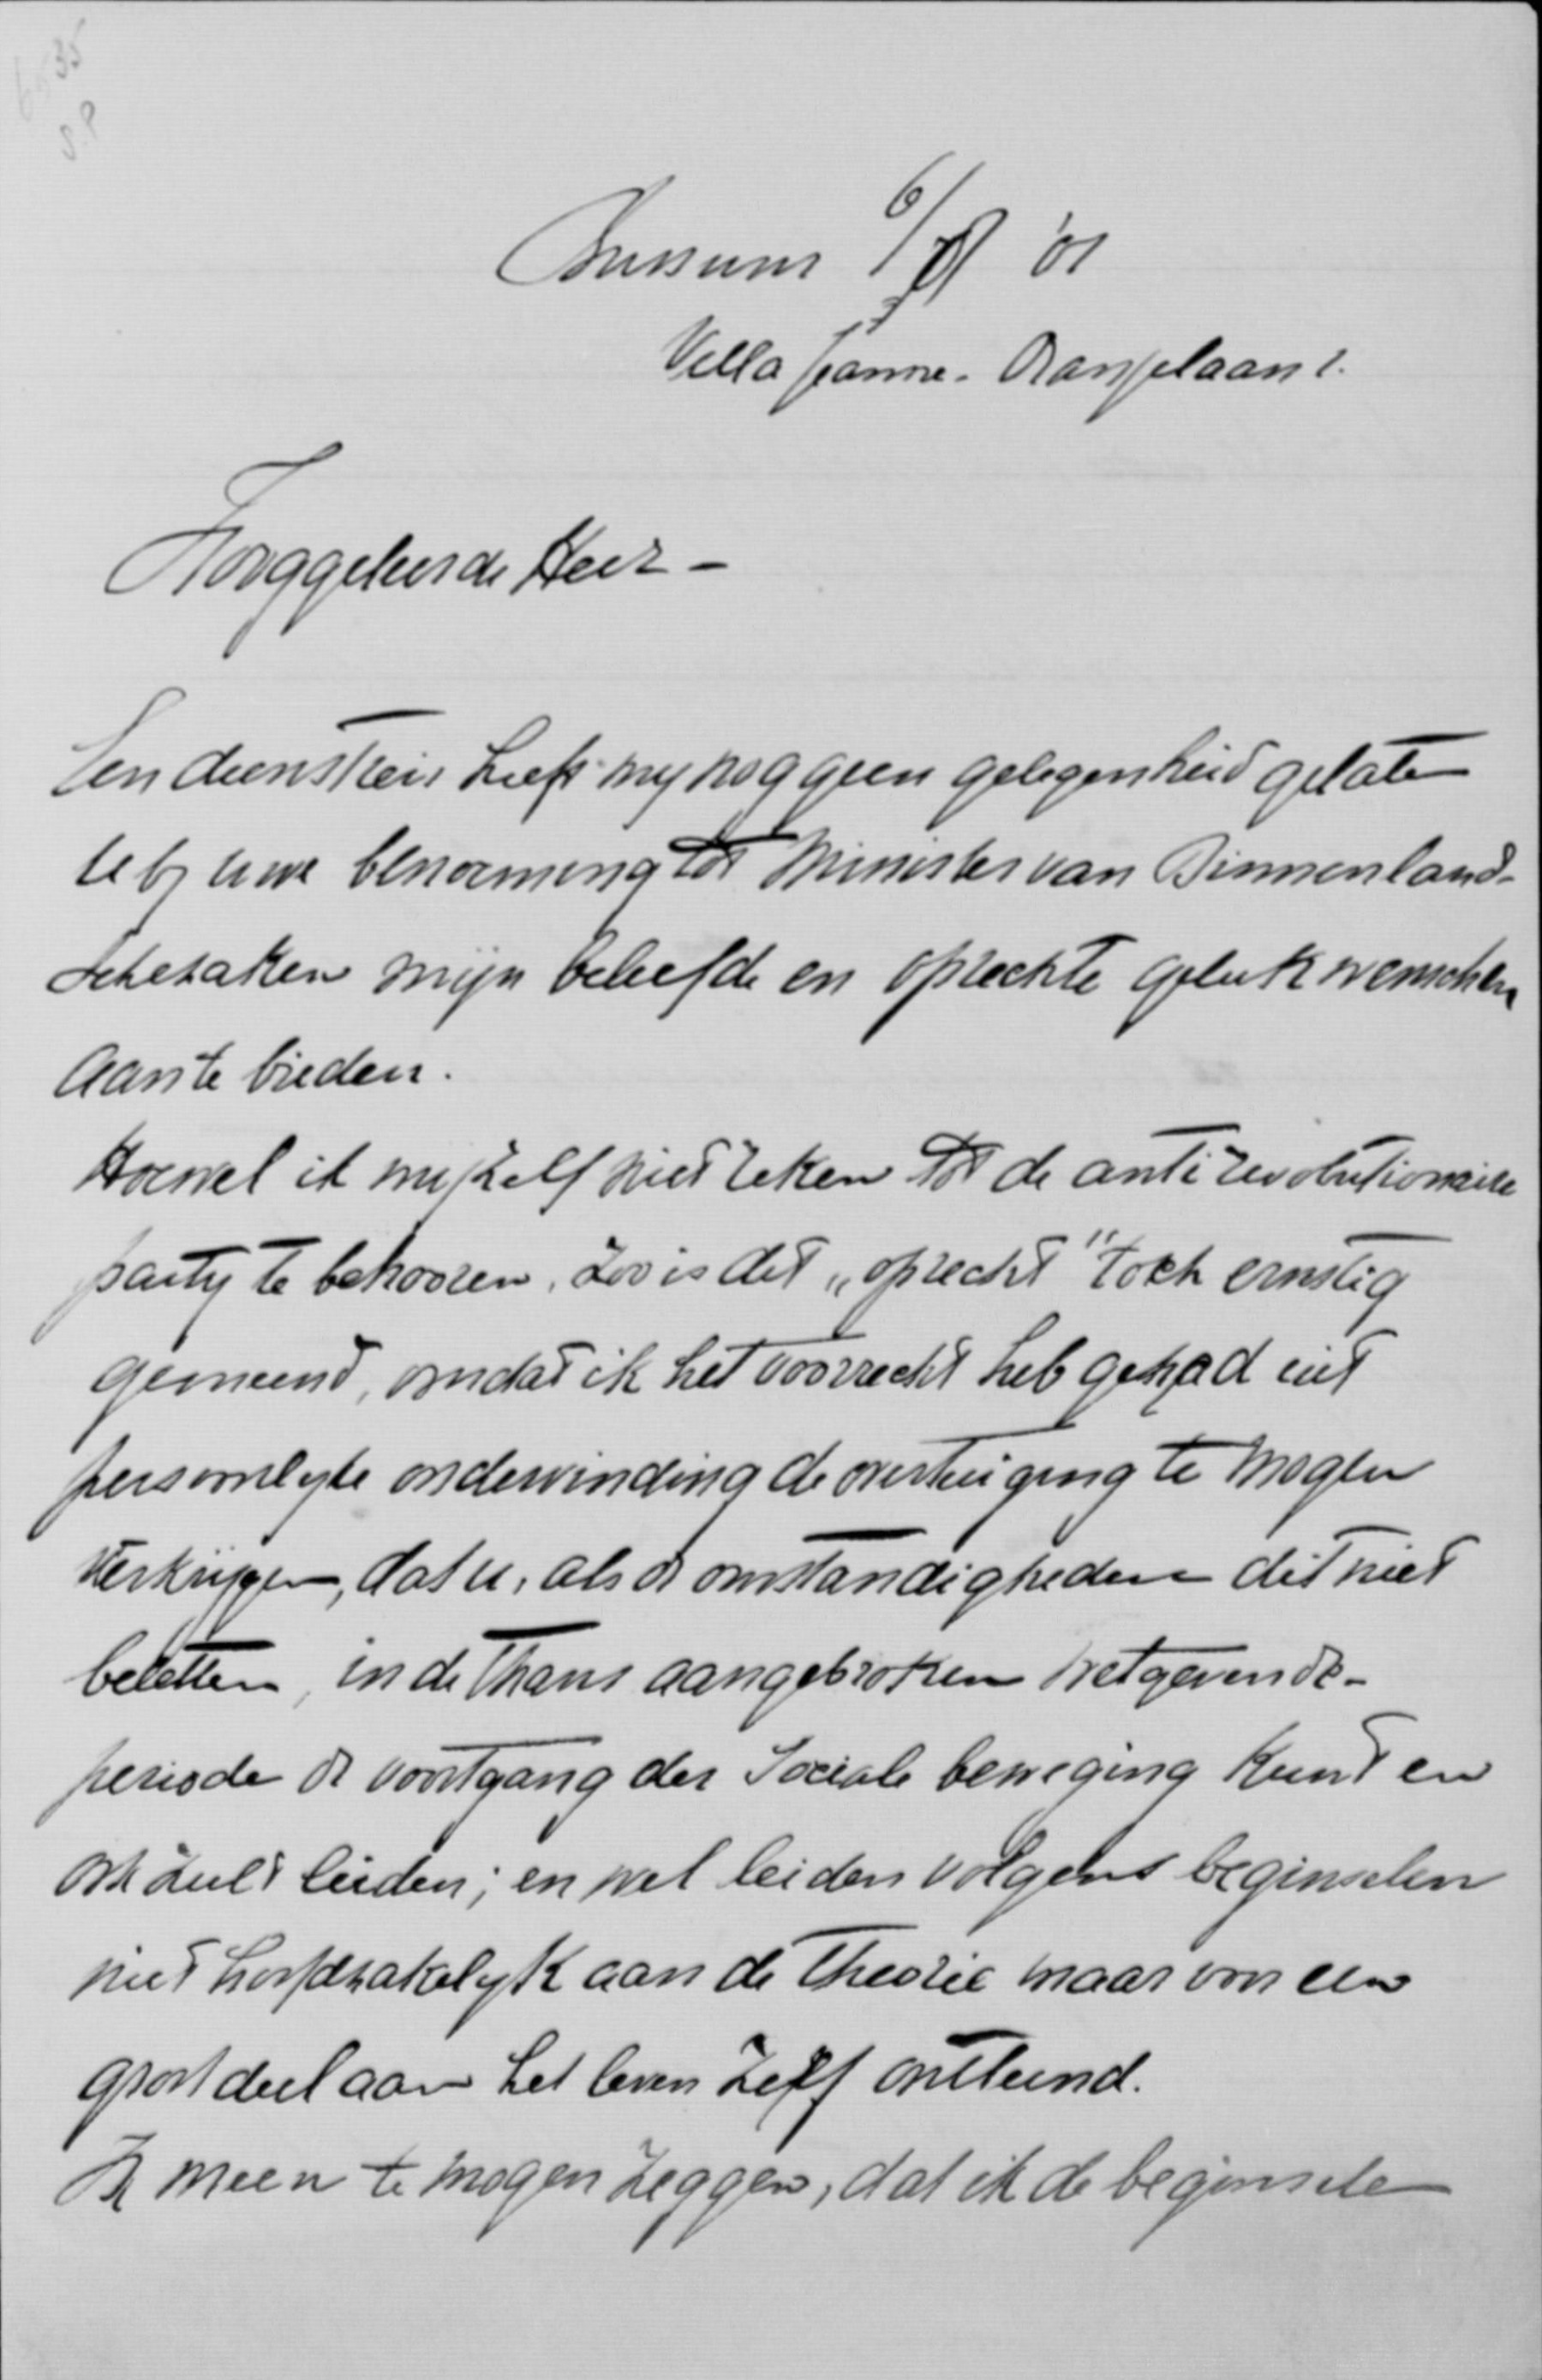 6535
S.P
Bussum 6/8 '01
Villa Jeanne. Oranjelaan 1.
Hooggeleerde Heer –
Een dienstreis liet mij nog geen gelegenheid gelaten
U bij uwe benoeming tot Minister van Binnenland-
sche zaken mijn beleefde en oprechte gelukwenschen
aan te bieden.
Hoewel ik mijzelf niet reken tot de antirevolutionaire
partij te behooren, zoo is dit „oprecht" toch ernstig
gemeend, omdat ik het voorrecht heb gehad uit
persoonlijke ondervinding de overtuiging te mogen
verkrijgen, dat u, als de omstandigheden dit niet
beletten, in de thans aangebroken wetgevende-
periode de voortgang der Sociale beweging kunt en
ook zult leiden; en wel leiden volgens beginselen
niet hoofdzakelijk aan de theorie maar voor een
groot deel aan het leven zelf ontleend.
Ik meen te mogen zeggen, dat ik de beginselen